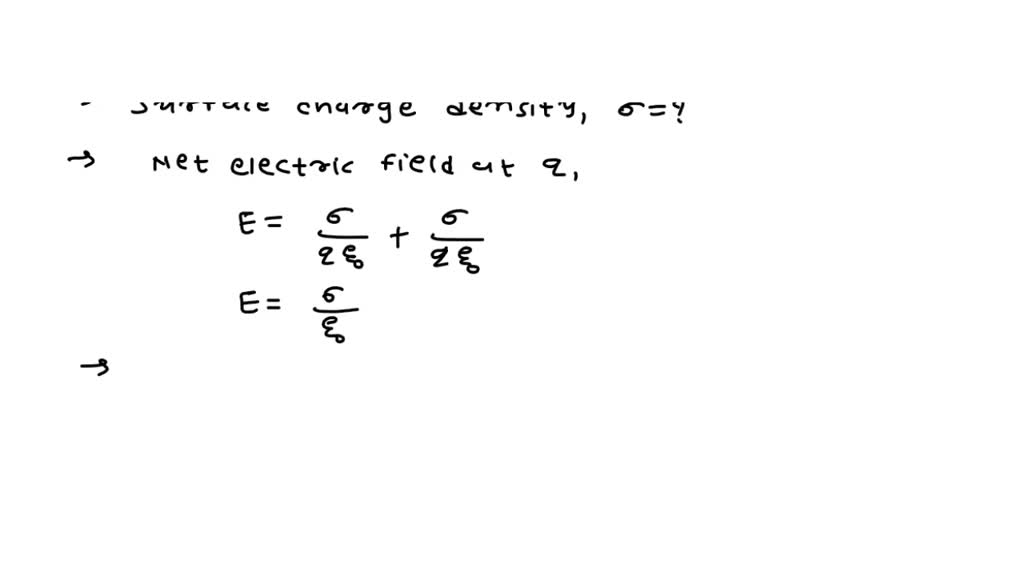 - Surface charge density, σ=?
→ Net electric field at q,
E = σ/2ξ₀ + σ/2ξ₀
E = σ/ξ₀
→